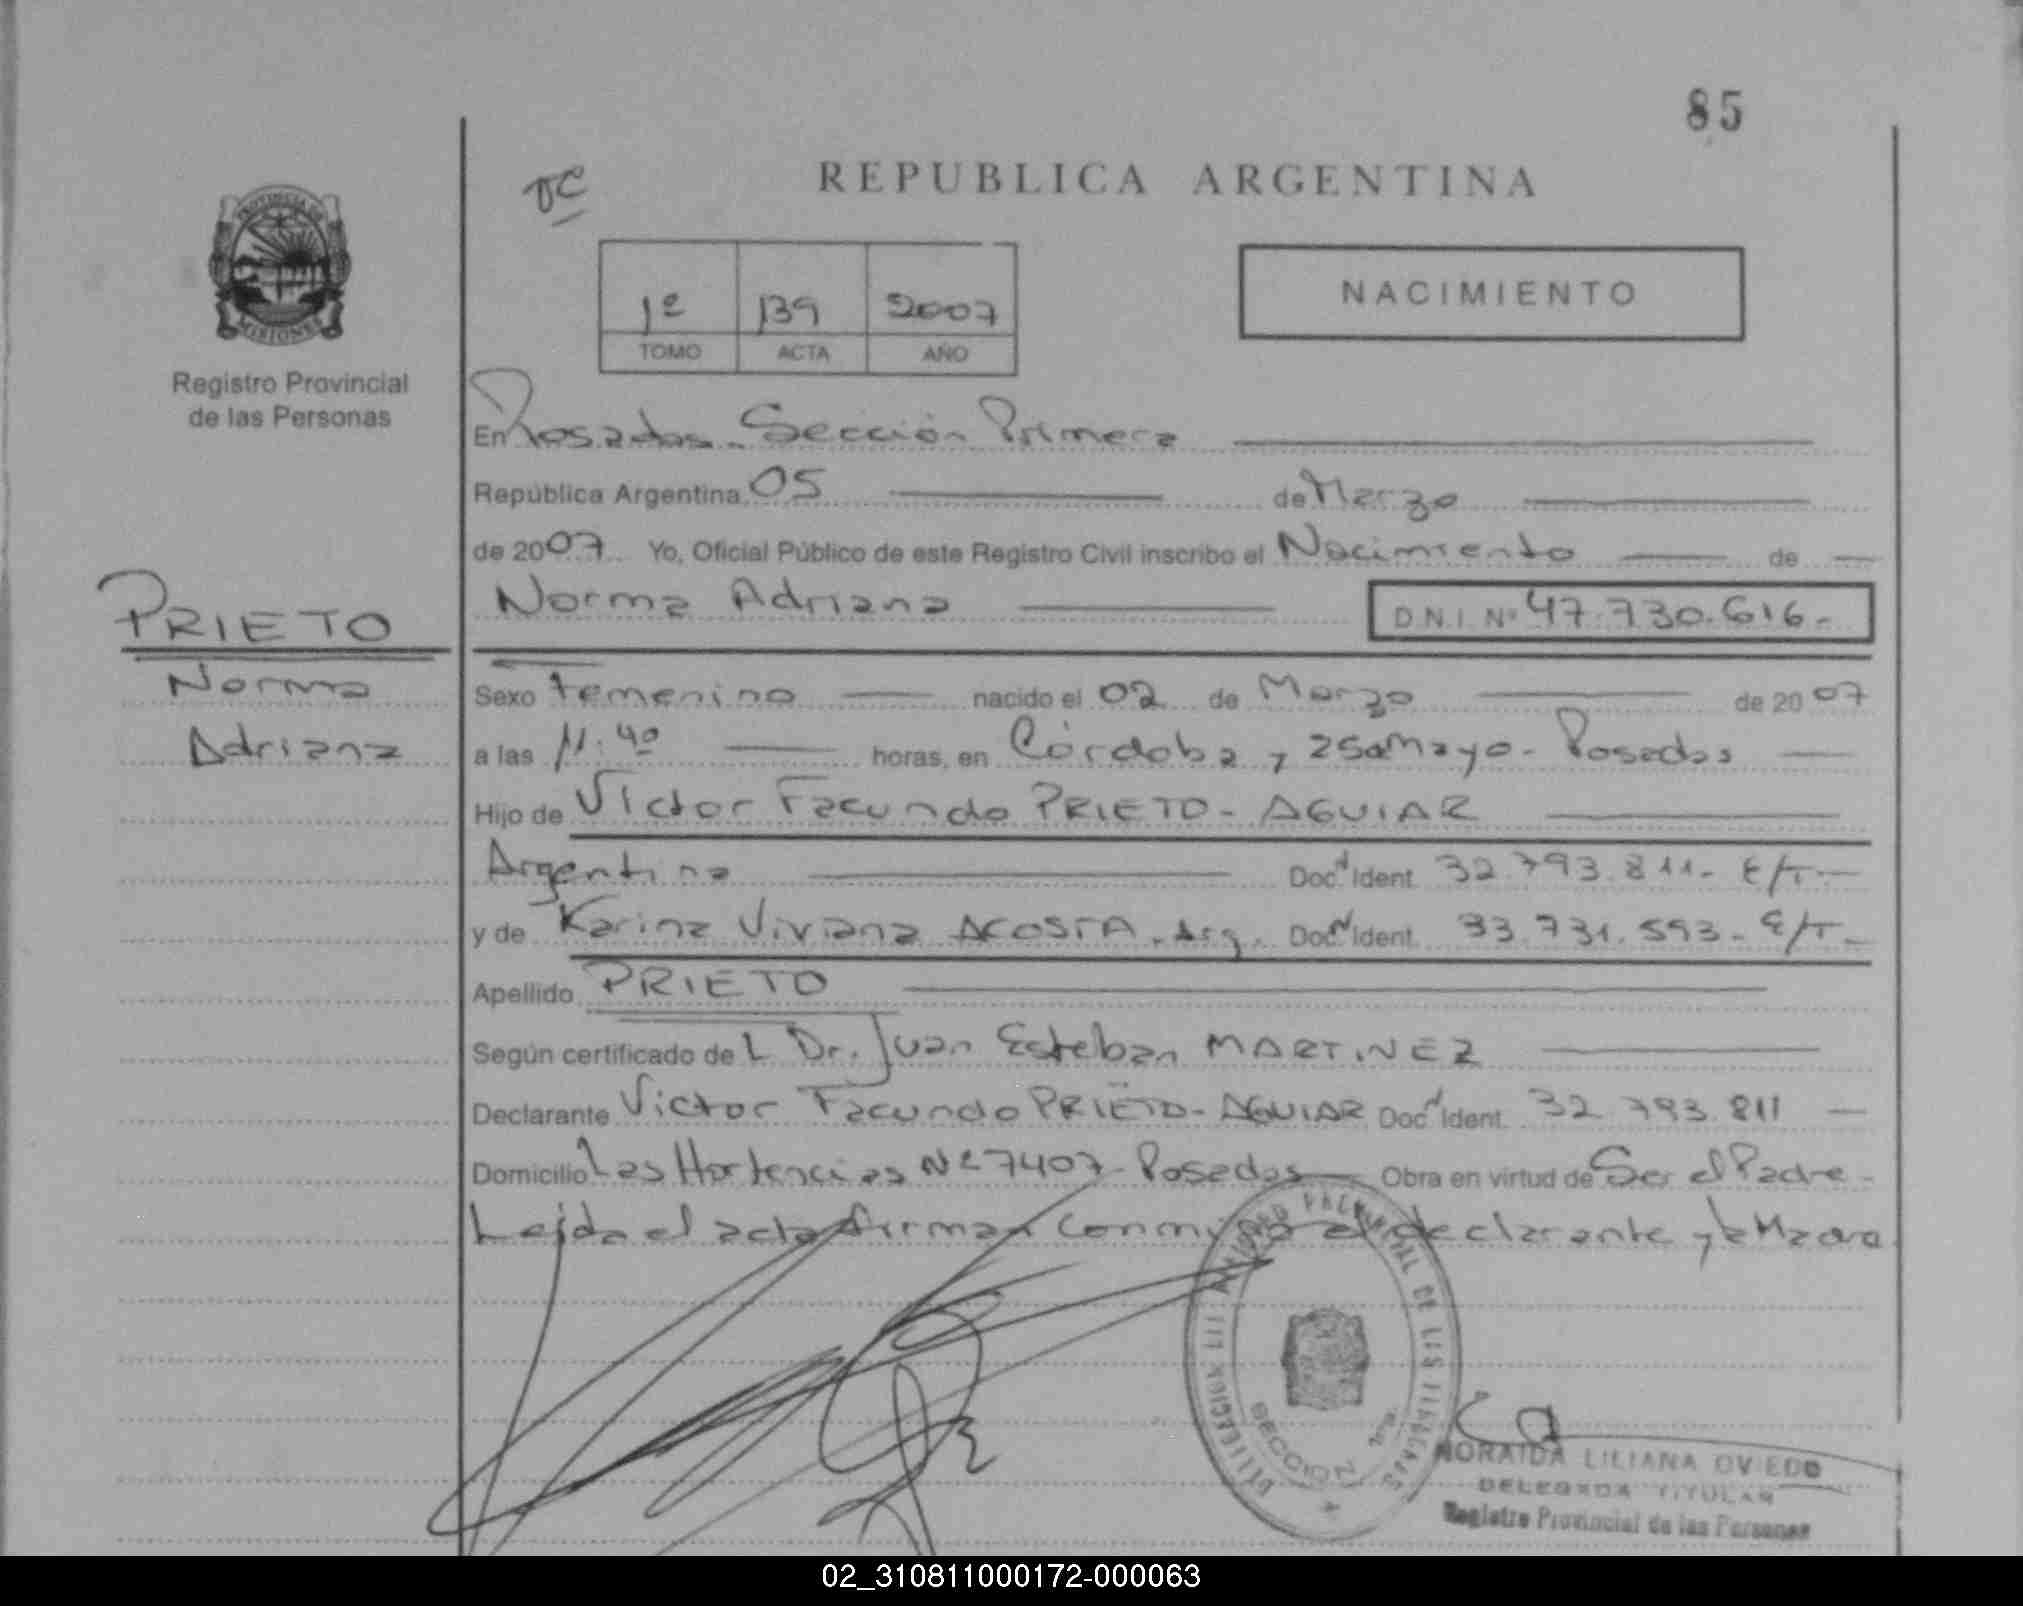 85
REPUBLICA ARGENTINA
PROVINCIA DE
MISIONES
Registro Provincial
de las Personas
1º 139 2007
TOMO ACTA AÑO
NACIMIENTO
En Posadas - Sección Primera
República Argentina 05 de Marzo
de 2007 Yo, Oficial Público de este Registro Civil inscribo el Nacimiento de
Norma Adriana D.N.I. Nº 47.730.616.-
PRIETO
Norma
Adriana
Sexo Femenino nacido el 02 de Marzo de 2007
a las 11:40 horas, en Córdoba y 25 de Mayo - Posadas
Hijo de Victor Facundo PRIETO - AGUIAR
Argentina Doc. Ident. 32.793.811 - E/T -
y de Karina Viviana ACOSTA. Arg. Doc. Ident. 33.731.593 - E/T -
Apellido PRIETO
Según certificado de L Dr. Juan Esteban MARTINEZ
Declarante Victor Facundo PRIETO - AGUIAR Doc. Ident. 32.793.811
Domicilio Las Hortencias Nº 7407 - Posadas Obra en virtud de Ser el Padre -
Leida el acta firman conmigo el declarante y la Madre
DE LAS PERSONAS
SECCION
NORAIDA LILIANA OVIEDO
DELEGADA TITULAR
Registro Provincial de las Personas
02_310811000172-000063